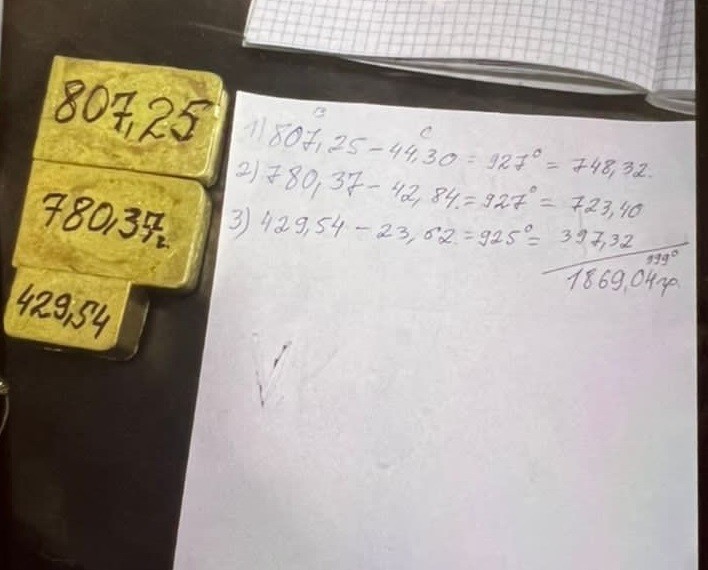 807,25
780,37г.
429,54
В С
1) 807,25 – 44,30 = 927° = 748,32.
2) 780,37 – 42,84. = 927° = 723,40
3) 429,54 – 23,62. = 925° = 397,32
999°
1869,04гр.
V